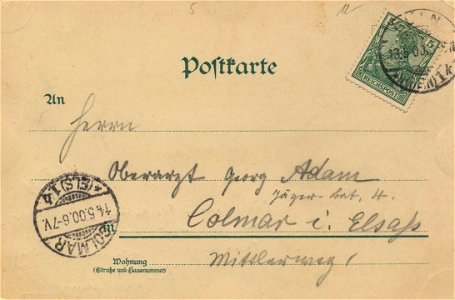 Postkarte
An
Herrn
Oberarzt Georg Adam
Jäger-Bat. 4.
Colmar i. Elsaß
in
Wohnung
(Straße und Hausnummer)
Mittlerweg 1
REICHSPOST
COLMAR
14.5.00.6-7V.
*(ELS)1*